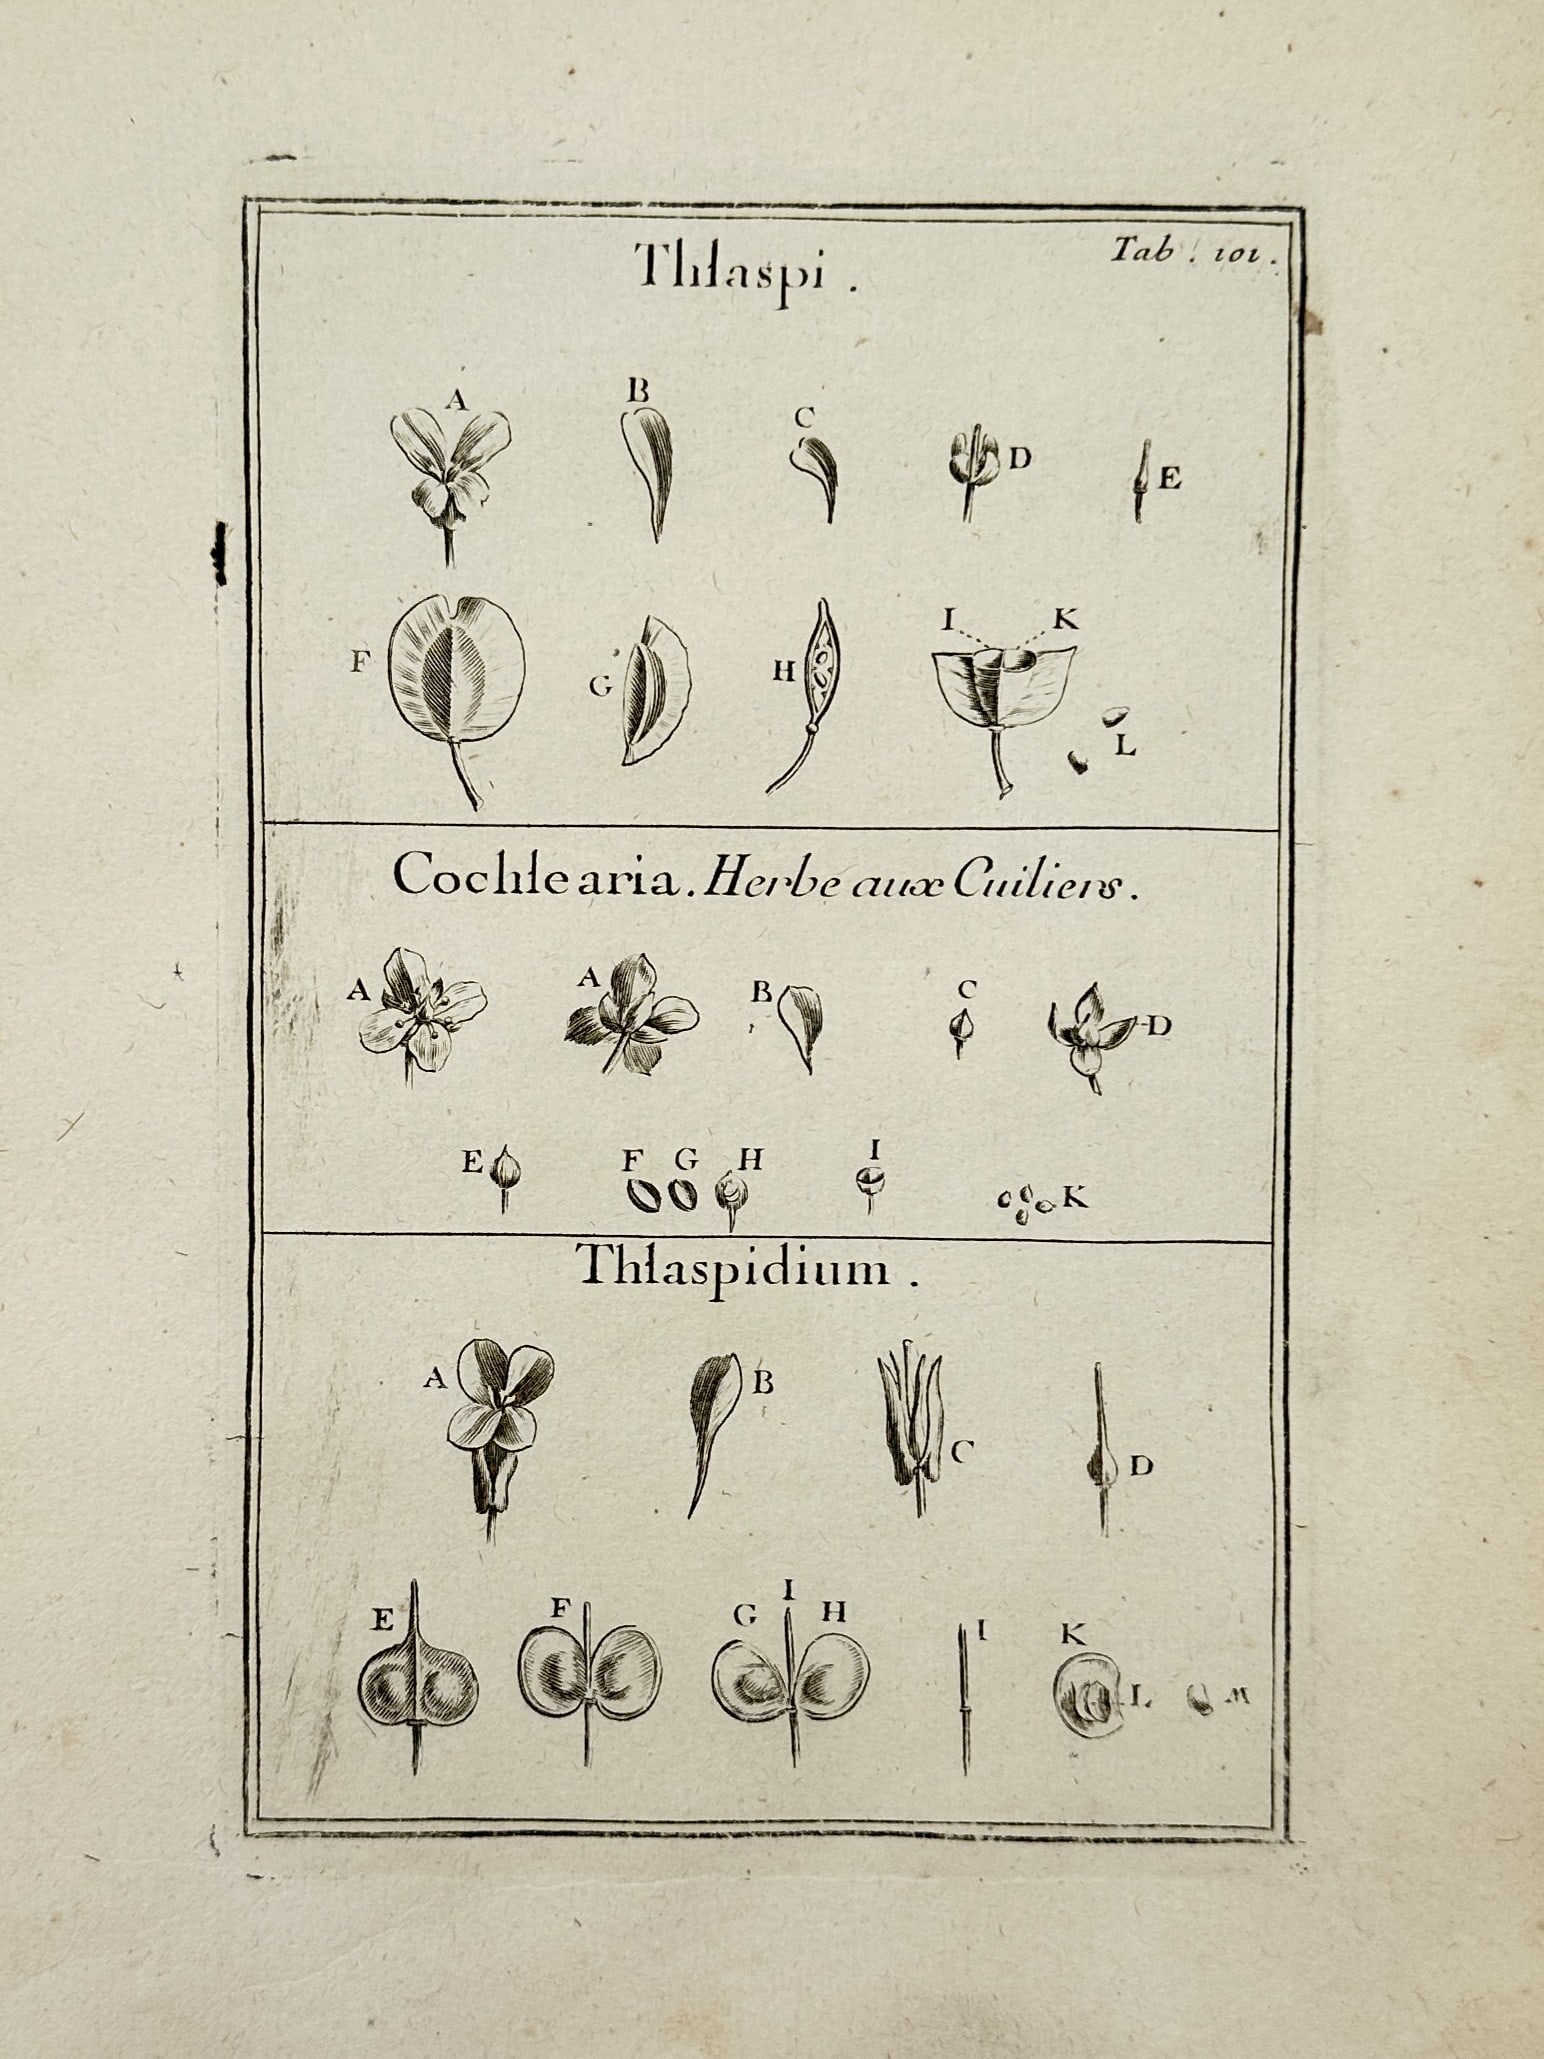 Tab. 101.
Thlaspi.
A B C D E
F G H I K L
Cochlearia. Herbe aux Cuiliers.
A A B C D
E F G H I K
Thlaspidium.
A B C D
E F G I H I K L M